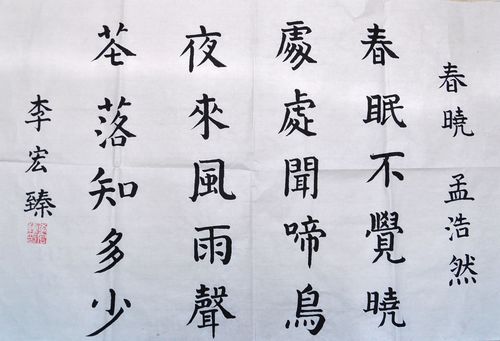 春曉 孟浩然
春眠不覺曉
處處聞啼鳥
夜來風雨聲
花落知多少
李宏臻